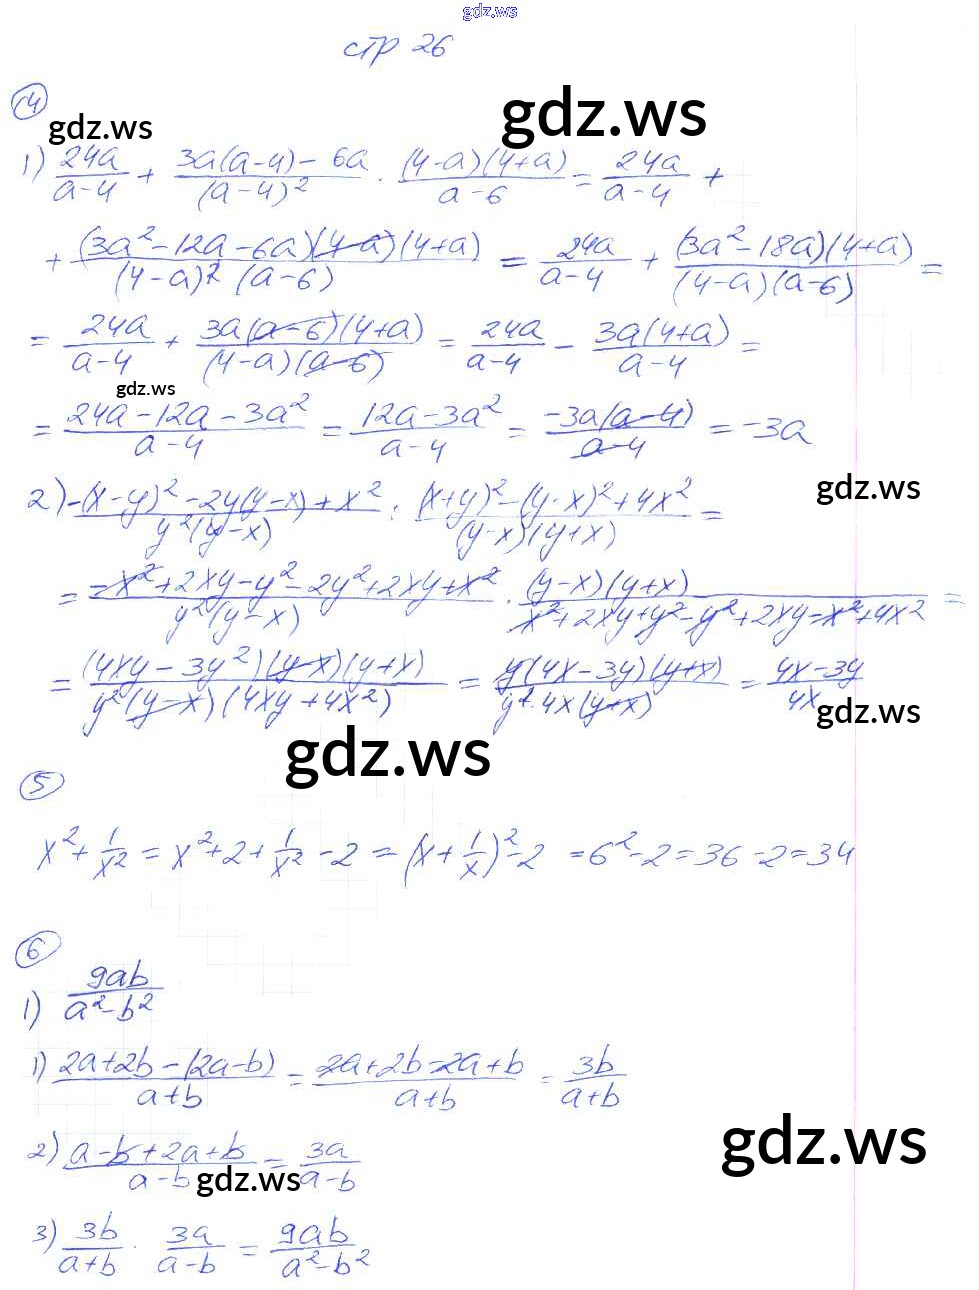 gdz.ws
стр 26
4
gdz.ws
gdz.ws
1) 24a/(a-4) + (3a(a-4) - 6a)/(a-4)² · (4-a)(4+a)/(a-6) = 24a/(a-4) +
+ (3a²-12a-6a)(4-a)(4+a)/((4-a)²(a-6)) = 24a/(a-4) + (3a²-18a)(4+a)/((4-a)(a-6)) =
= 24a/(a-4) + 3a(a-6)(4+a)/((4-a)(a-6)) = 24a/(a-4) - 3a(4+a)/(a-4) =
gdz.ws
= (24a-12a-3a²)/(a-4) = (12a-3a²)/(a-4) = -3a(a-4)/(a-4) = -3a
gdz.ws
2) (-(x-y)²-2y(y-x)+x²)/(y²(y-x)) : ((x+y)²-(y-x)²+4x²)/((y-x)(y+x)) =
= (-x²+2xy-y²-2y²+2xy+x²)/(y²(y-x)) · (y-x)(y+x)/(x²+2xy+y²-y²+2xy-x²+4x²) =
= (4xy-3y²)(y-x)(y+x)/(y²(y-x)(4xy+4x²)) = y(4x-3y)(y+x)/(y²·4x(y+x)) = (4x-3y)/4x
gdz.ws
gdz.ws
5
x² + 1/x² = x²+2+1/x² -2 = (x+1/x)²-2 = 6²-2=36-2=34
6
1) 9ab/(a²-b²)
1) (2a+2b-(2a-b))/(a+b) = (2a+2b-2a+b)/(a+b) = 3b/(a+b)
gdz.ws
2) (a-b+2a+b)/(a-b) = 3a/(a-b)
gdz.ws
3) 3b/(a+b) · 3a/(a-b) = 9ab/(a²-b²)